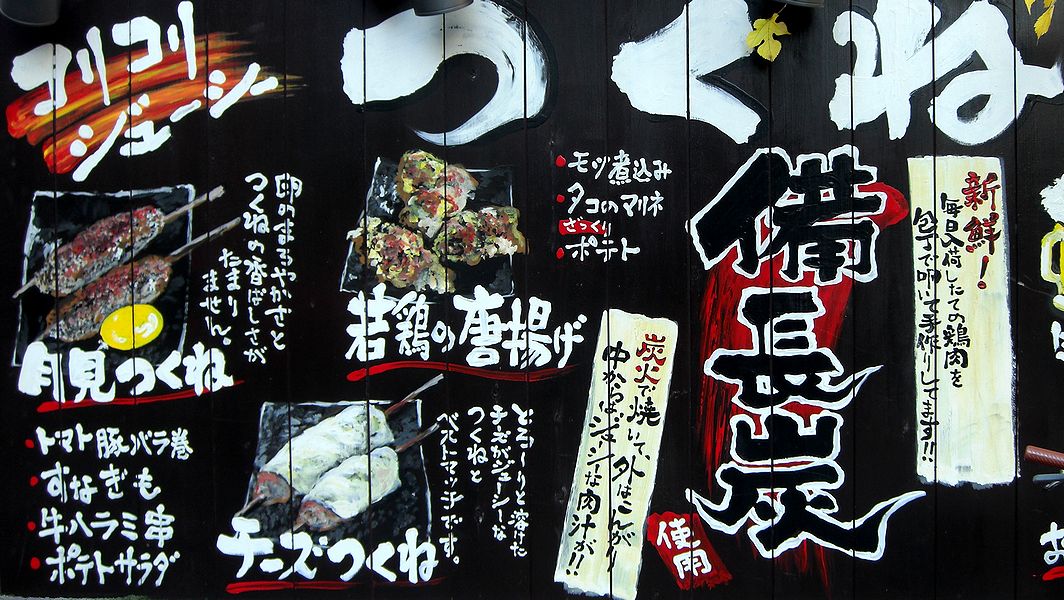 つくね
コリコリ
ジューシー
備長炭
使用
新鮮!
毎日入荷したての鶏肉を
包丁で叩いて手作りしてます!!
炭火で焼いて、外はこんがり
中からは、ジューシーな肉汁が!!
モツ煮込み
タコのマリネ
ざっくり
ポテト
若鶏の唐揚げ
卵のまろやかさと
つくねの香ばしさが
たまり
ません。
月見つくね
とろ〜りと溶けた
チーズがジューシーな
つくねと
ベストマッチです。
チーズつくね
トマト豚バラ巻
すなぎも
牛ハラミ串
ポテトサラダ